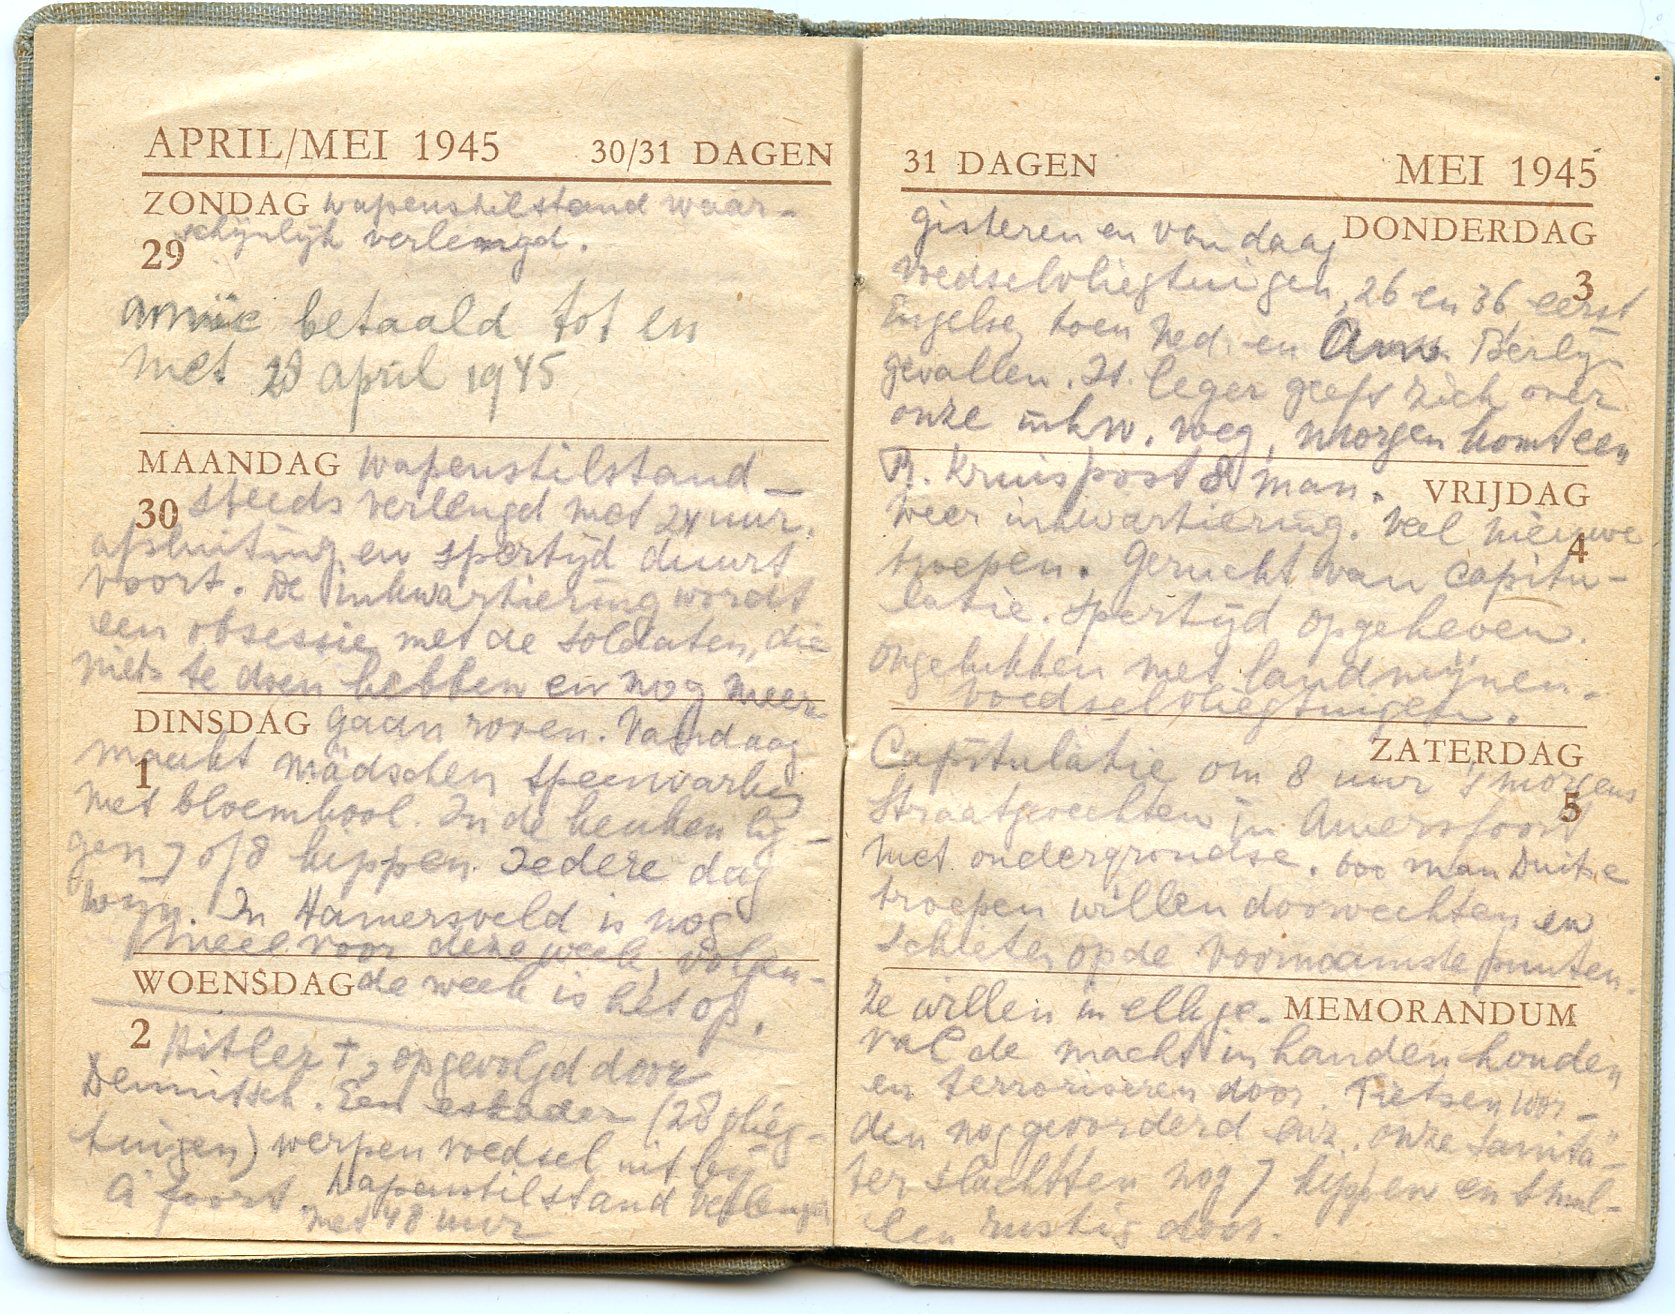 APRIL/MEI 1945 30/31 DAGEN
ZONDAG wapenstilstand waar-
29 schijnlijk verlengd.
annie betaald tot en
met 28 april 1945
MAANDAG Wapenstilstand
30 steeds verlengd met 24 uur.
afsluiting en spertijd duurt
voort. De inkwartiering wordt
een obsessie met de soldaten, die
niets te doen hebben en nog meer
DINSDAG gaan roven. Vandaag
1 maakt mädschen speenvarken
met bloemkool. In de keuken lig-
gen 7 of 8 kippen. Iedere dag
wijn. In Hamersveld is nog
meel voor deze week, volgen-
WOENSDAG de week is het op.
2 Hitler †, opgevolgd door
Dennitsch. Een eskader (28 vlieg-
tuigen) werpen voedsel uit bij
A'foort. Wapenstilstand verlengd
met 48 uur
31 DAGEN MEI 1945
gisteren en vandaag DONDERDAG
voedselvliegtuigen, 26 en 36 eerst 3
Engelse, toen Ned. en Am. Berlijn
gevallen. It. leger geeft zich over.
onze inkw. weg, morgen komt een
R. Kruispost 8 man. VRIJDAG
Weer inkwartiering. Veel nieuwe
troepen. Gerucht van capitu- 4
latie. Spertijd opgeheven.
ongelukken met landmijnen.
voedselvliegtuigen.
ZATERDAG
Capitulatie om 8 uur 's morgens
Straatgevechten in Amersfoort 5
met ondergrondse. 600 man Duitse
troepen willen doorvechten en
schieten op de voornaamste punten.
Ze willen in elk ge- MEMORANDUM
val de macht in handen houden
en terroriseren door. Fietsen wor-
den nog gevorderd enz. onze Sanitä-
ter slachtten nog 7 kippen en smul-
len rustig door.